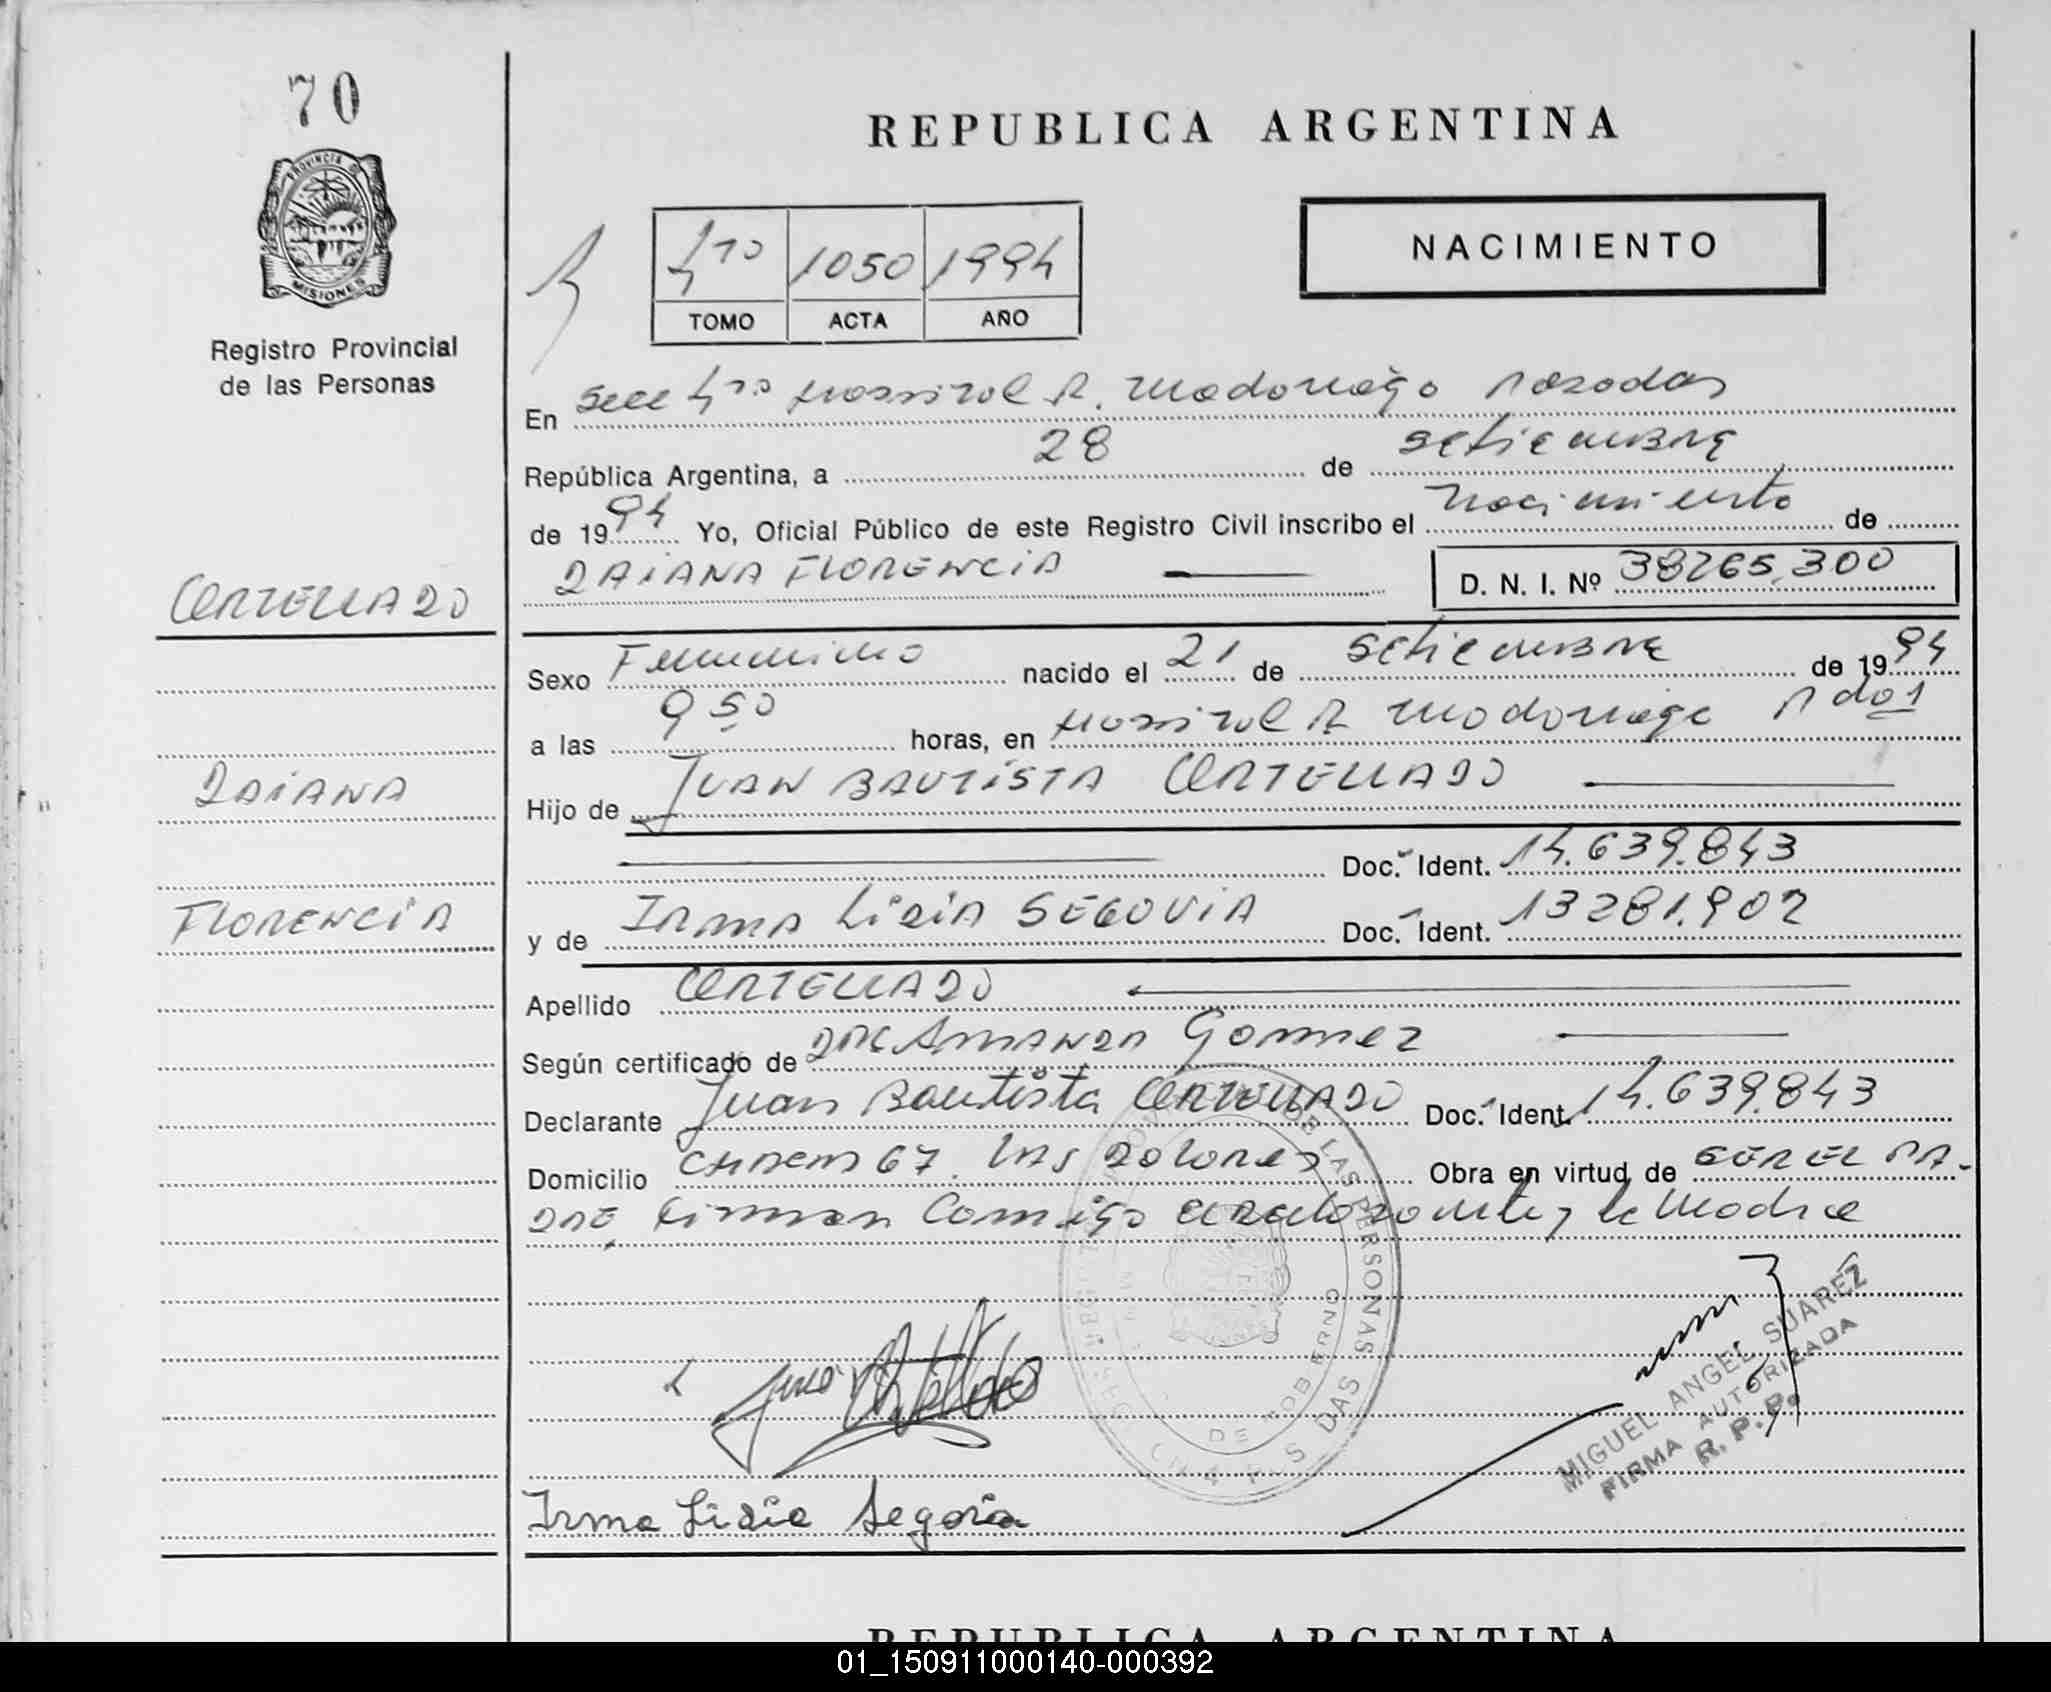 70
REPUBLICA ARGENTINA
PROVINCIA D
MISIONES
Registro Provincial
de las Personas
4to 1050 1994
TOMO ACTA AÑO
NACIMIENTO
En Secc 4to Hospital R. Madariaga Posadas
República Argentina, a 28 de setiembre
de 1994 Yo, Oficial Público de este Registro Civil inscribo el nacimiento de
DAIANA FLORENCIA
D. N. I. Nº 38265.300
CERTELLADO
DAIANA
FLORENCIA
Sexo Femenino nacido el 21 de setiembre de 1994
a las 9 50 horas, en Hospital R Madariaga Pdas
Hijo de JUAN BAUTISTA CERTELLADO
Doc. Ident. 14.639.843
y de IRMA LIDIA SEGOVIA Doc. Ident. 13281.902
Apellido CERTELLADO
Según certificado de AMANDA Gomez
Declarante Juan Bautista CERTELLADO Doc. Ident. 14.639.843
Domicilio 67. LAS Dolores Obra en virtud de SER EL PA-
DRE, Firman Conmigo el declarante y la Madre
DE LAS PERSONAS
DE GOBIERNO
MIGUEL ANGEL SUAREZ
FIRMA AUTORIZADA
R. P. P.
Irma Lidia Segovia
REPUBLICA ARGENTINA
01_150911000140-000392